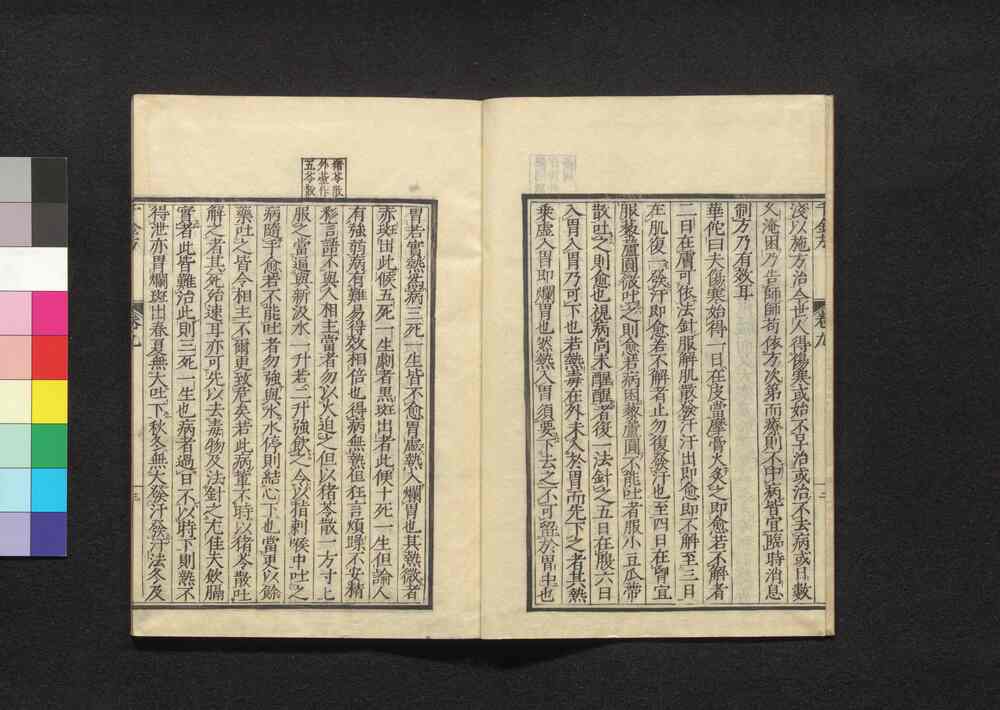 淺以施方治今世人得傷寒或始不早治或治不去病或日數
久淹困乃告師師苟依方次第而療則不中病皆宜臨時消息
制方乃有效耳
華佗曰夫傷寒始得一日在皮當摩膏火灸之即愈若不解者
二日在膚可依法針服解肌散發汗汗出即愈即不解至三日
在肌復一發汗即愈若不解者止勿復發汗也至四日在胷宜
服藜蘆圓微吐之則愈若病困藜蘆圓不能吐者服小豆瓜蒂
散吐之則愈也視病尚未醒醒者復一法針之五日在腹六日
入胃入胃乃可下也若熱毒在外未入於胃而先下之者其熱
乘虛入胃即爛胃也然熱入胃須要下去之不可留於胃中也
猪苓散
外臺作
五苓散
胃若實熱爲病三死一生皆不愈胃虛熱入爛胃也其熱微者
赤斑出此候五死一生劇者黑斑出者此便十死一生但論人
有強弱病有難易得效相倍也得病無熱但狂言煩躁不安精
彩言語不與人相主當者勿以火迫之但以猪苓散一方寸匕
服之當逼與新汲水一升若二升強飲之令以指刺喉中吐之
病隨手愈若不能吐者勿強與水水停則結心下也當更以餘
藥吐之皆令相主不爾更致危矣若此病輩不時以猪苓散吐
解之者其死殆速耳亦可先以去毒物及法針之尤佳夫飲膈
實者此皆難治此則三死一生也病者過日不以時下則熱不
得泄亦胃爛斑出春夏無大吐下秋冬無大發汗發汗法冬及